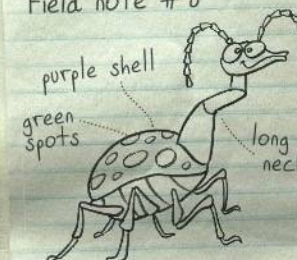 Field note #
purple shell
green
spots
long